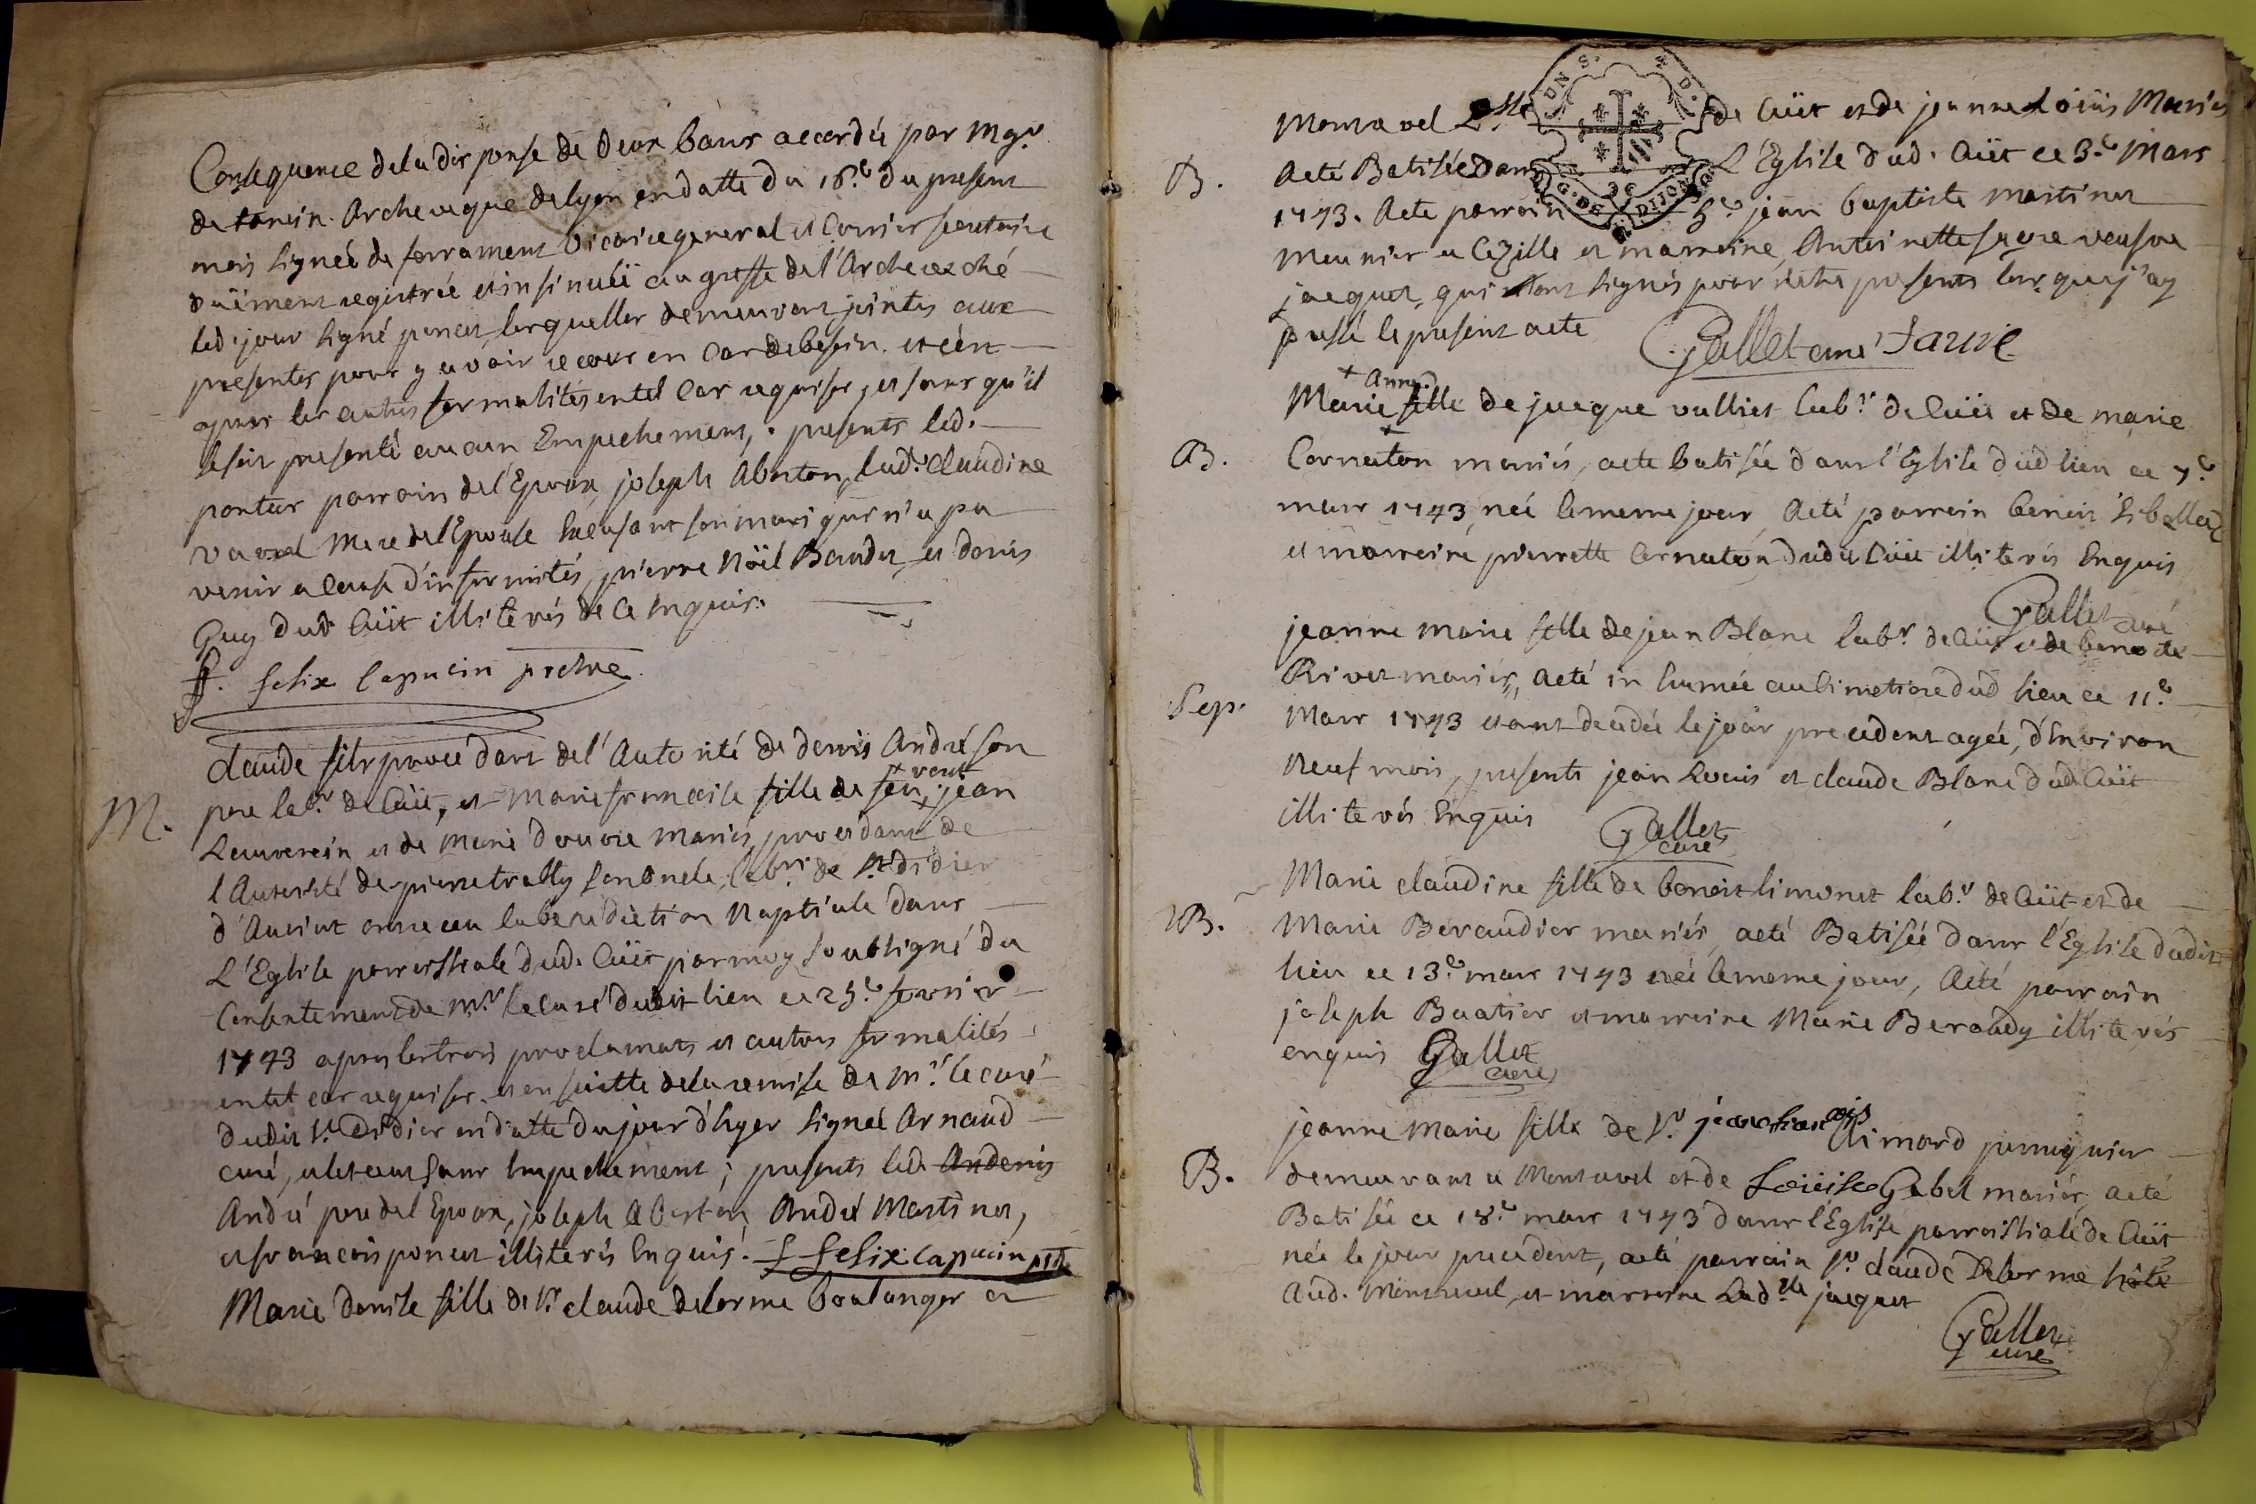 Consequence de la dispense de deux bans accordée par Mgr
de tencin Archeveque de lyon en datte du 18e du present
mois signée de ferrament vicaire general et Cornier secretaire
duëment registrée et insinuëe au greffe de l'Archevesché
led. jour signé poncet, lesquelles demeurent jointes aux
presentes pour y avoir recours en cas de besoin. et
apres les autres formalités en tel cas requises, et sans qu'il
se soit presenté aucun Empechement, presents led.
pontus parrain de l'Epoux, joseph Aberton, lad. claudine
mere de l'Epouse excusant son mari qui n'a pu
venir a cause d'infirmités, pierre Nöel Baudet, et denis
Guy dud Cüit illiterés de ce Enquis.
f. felix Capucin pretre
M.
claude fils procedant de l'Autorité de denis André son
pere labr. de Cüit, et Marie francoise fille de feu vent jean
Lauverein et de Marie douvre mariés, procedant de
l'Autorité de pierre trably son oncle, labr. de St didier
d'Aucint ont receu la benediction Nuptiale dans
L'Eglise parroissiale dud. Cüit par moy soubsigné du
Consentement de Mr. le curé dudit lieu ce 25e fevrier
1743 apres les trois proclamats et autres formalités
en tel cas requises. et ensuitte de la remise de Mr. le curé
dudit St. didier en datte du jour d'hyer signée Arnaud
curé, et le tout sans Empechement; presents led. Andenis
André pere de l'Epoux, joseph Aberton, André Martinet,
et francois poncet illiterés Enquis. f felix Capucin ptre
Marie denise fille de Sr. claude delorme boulanger a
Monravel de Cüit et de jeanne Loüis Mariés
B.
a eté Batisée dans L'Eglise dud. Cüit ce 3e Mars
1743. a eté parrain Sr. jean baptiste martinet
meunier a Cezille et marreine Antoinette favre veufve
jacquet, qui n'ont signés pour n'etre presents lorsque j'ay
passé le present acte Gallet curé favre
+ Anne
Marie fille de jacque vulliet labr. de Cüit et de marie
B.
Cornaton mariés, a eté batisée dans l'Eglise dud lieu ce 7e
mars 1743, née le meme jour, a eté parrain benoit
et marreine pierrette Cornaton dudit Cüit illiterés Enquis
Gallet curé
jeanne marie fille de jean Blanc labr. de Cüit et de benoite
Rivet mariés, a eté inhumée au Cimetiere dud lieu ce 11e
Sep.
Mars 1743 etant decedée le jour precedent agée, d'Environ
Neuf mois, presents jean Louis et claude Blanc dud. Cüit
illiterés Enquis Gallet
curé
Marie claudine fille de benoit limonet labr. de Cüit et de
B.
Marie Beraudier mariés, a eté Batisée dans l'Eglise dudit
lieu ce 13e mars 1743 née le meme jour, a eté parrain
joseph Buatier et marreine Marie Beraudy illiterés
enquis Gallet
curé
jeanne Marie fille de Sr. jeanfrancois Aimard perruquier
B.
demeurant a Monravel et de Loüise Gabet mariés, a eté
Batisée ce 18e mars 1743 dans l'Eglise parroissiale de Cüit
née le jour precedent, a eté parrain Sr. claude Delorme hôte
aud. Monravel, et marreine Lad. lle jacquet
Gallet
curé